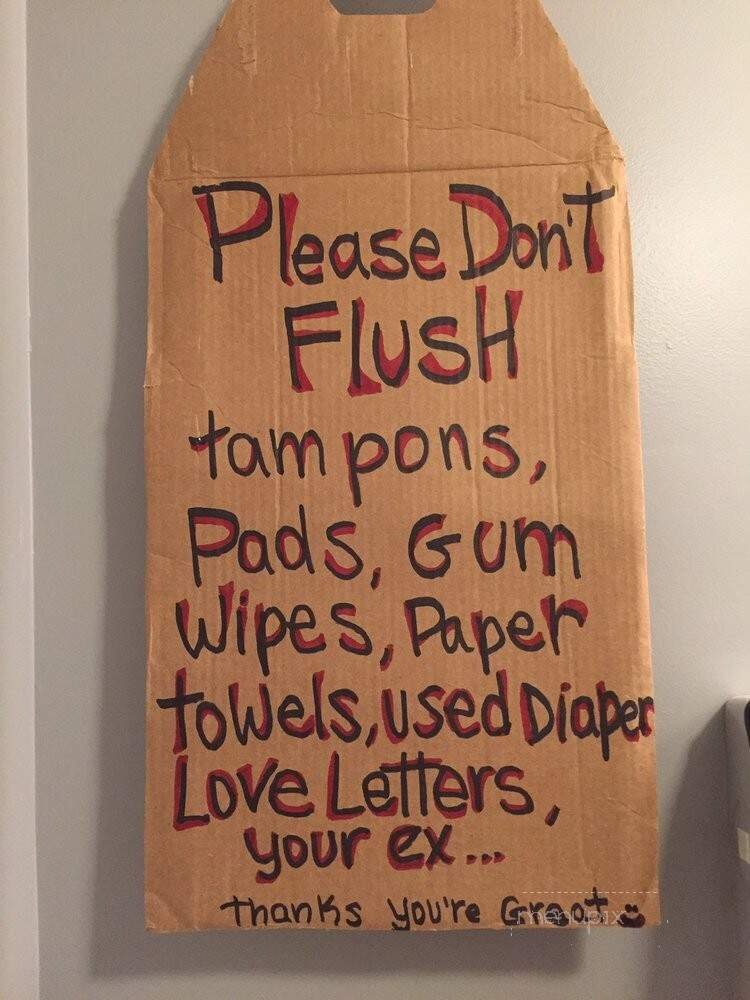 Please Don't
Flush
tampons,
Pads, Gum
Wipes, Paper
towels, used Diaper
Love Letters,
your ex...
thanks you're Great
menupix